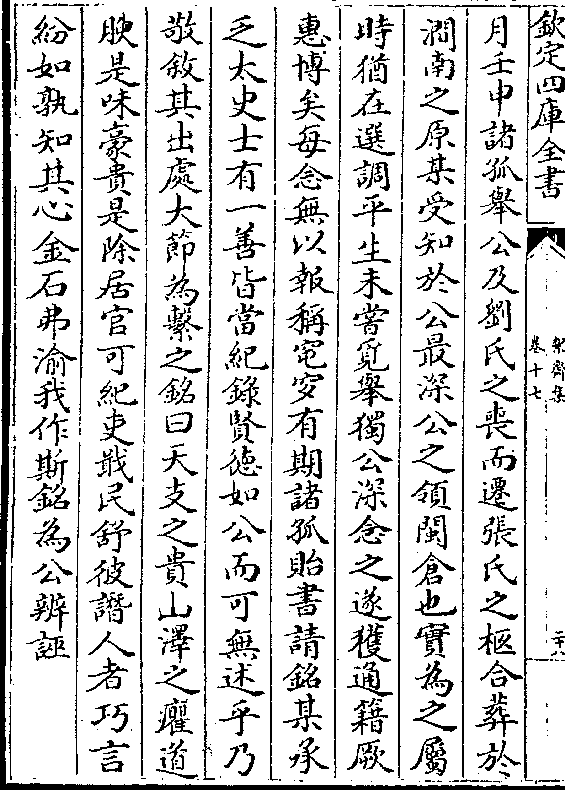 欽定四庫全書
絜齋集
卷十七
二十八
月壬申諸孤舉公及劉氏之喪而遷張氏之柩合葬於
澗南之原某受知於公最深公之領閩倉也實為之屬
時猶在選調平生未嘗覓舉獨公深念之遂獲通籍厥
惠博矣每念無以報稱窀穸有期諸孤貽書請銘某承
乏太史士有一善皆當紀錄賢德如公而可無述乎乃
敬敘其出處大節為繫之銘曰天支之貴山澤之癯道
腴是味豪貴是除居官可紀吏戢民舒彼譖人者巧言
紛如孰知其心金石弗渝我作斯銘為公辨誣